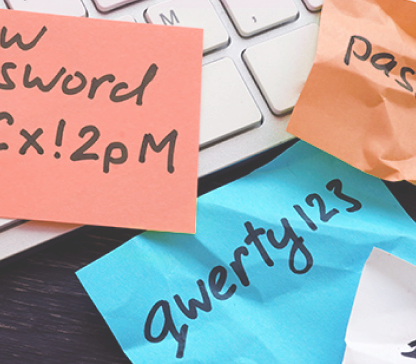 w
sword
Cx!2pM
pas
qwerty123
M